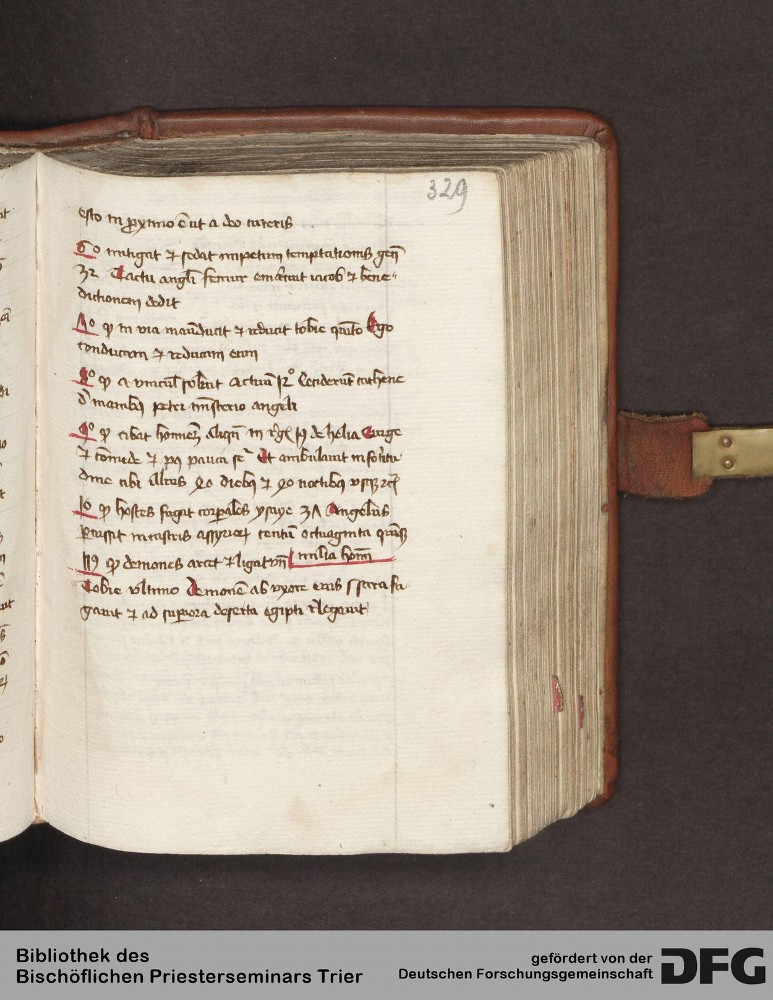 329
esto in proximo e ut a deo
6o mitigat et sedat impetum temptationis gen
32 Tactu angli femur emarcuit iacob et bene
dictionem dedit
7o quod in via manducit et reducit tobie quinto Ego
conducam et reducam eum
8o quod a vinculis soluit actuum 12o Ceciderunt cathene
de manibus petri misterio angeli
9o quod cibat homines in de helia Surge
et comede et pauca Et ambulauit in fortitu
dine cibi illius 40 diebus et 40 noctibus usque
10 quod hostes fugat corporales ysaye 37 Angelus
percussit in castris assyriorum centum octuaginta quinque
milia homi
11o quod demones arcet et ligat
Tobie ultimo Demonem ab uxore
gauit et ad superiora deserta egipti relegauit
Bibliothek des
Bischöflichen Priesterseminars Trier
gefördert von der
Deutschen Forschungsgemeinschaft
DFG